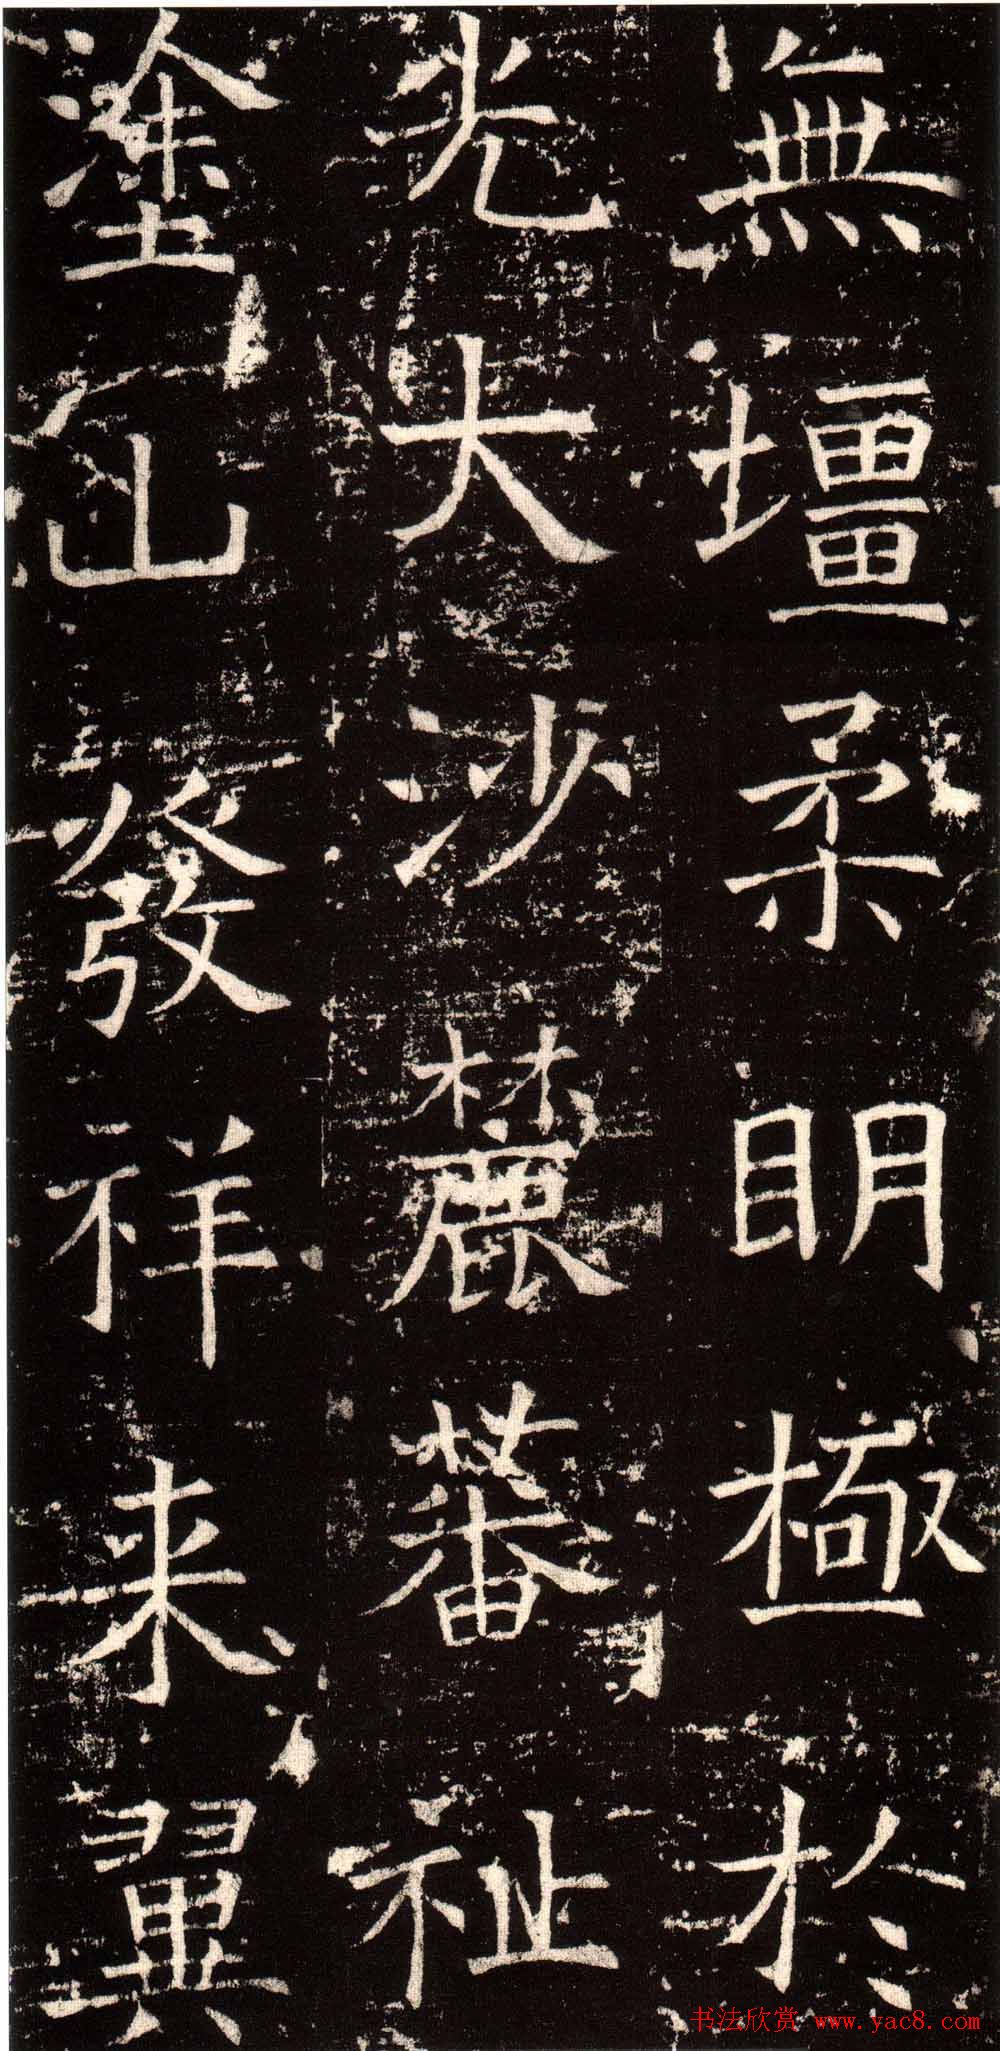 無壃柔明極於
光大沙麓蕃祉
塗山發祥来翼
书法欣赏 www.yac8.com